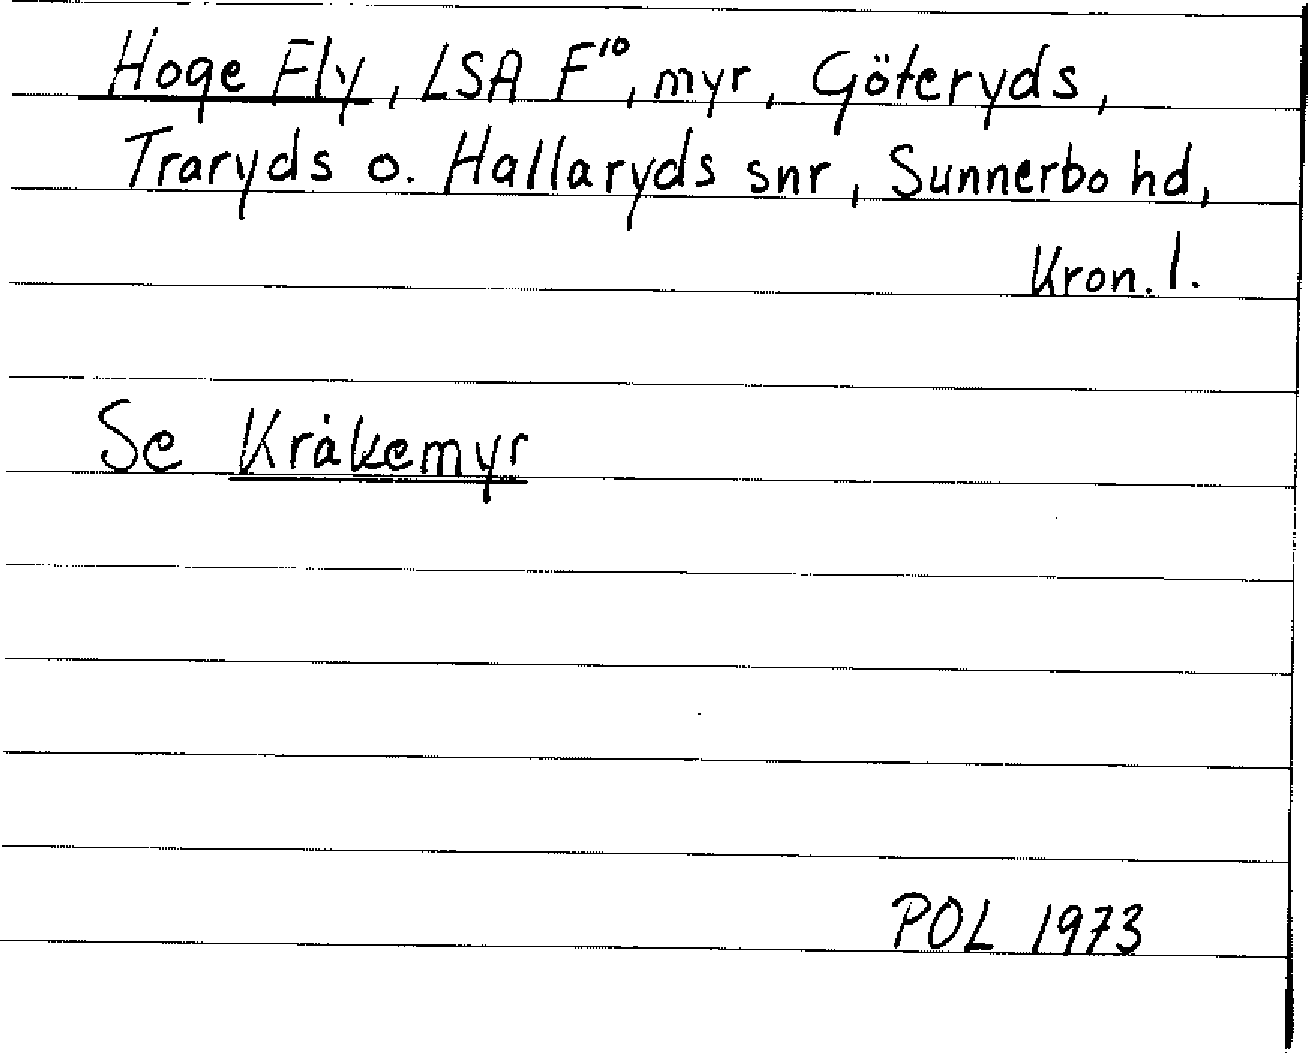 Hoge Fly, LSA F¹⁰, myr, Göteryds,
Traryds o. Hallaryds snr, Sunnerbo hd,
Kron. l.
Se Kråkemyr
POL 1973